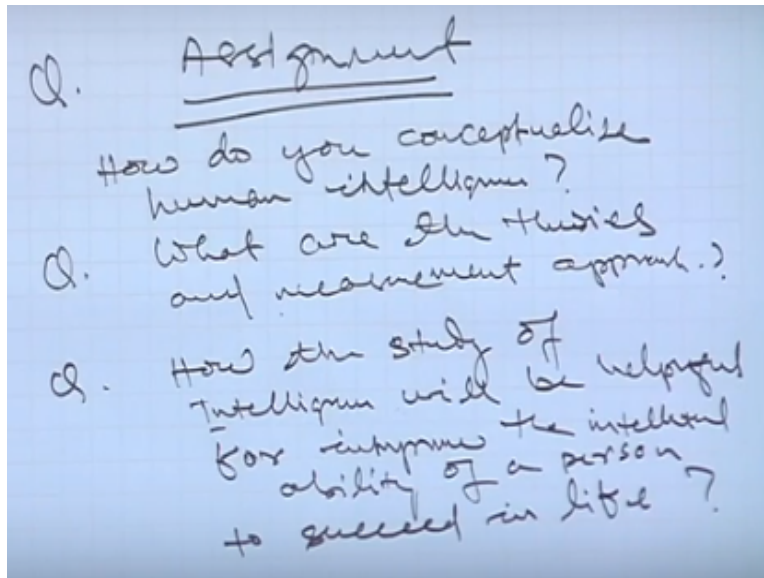 Q. Assignment
How do you conceptualise
human intelligence?
Q. What are the theories
and measurement approach.?
Q. How the study of
Intelligence will be helpful
for the intellectual
ability of a person
to succeed in life ?